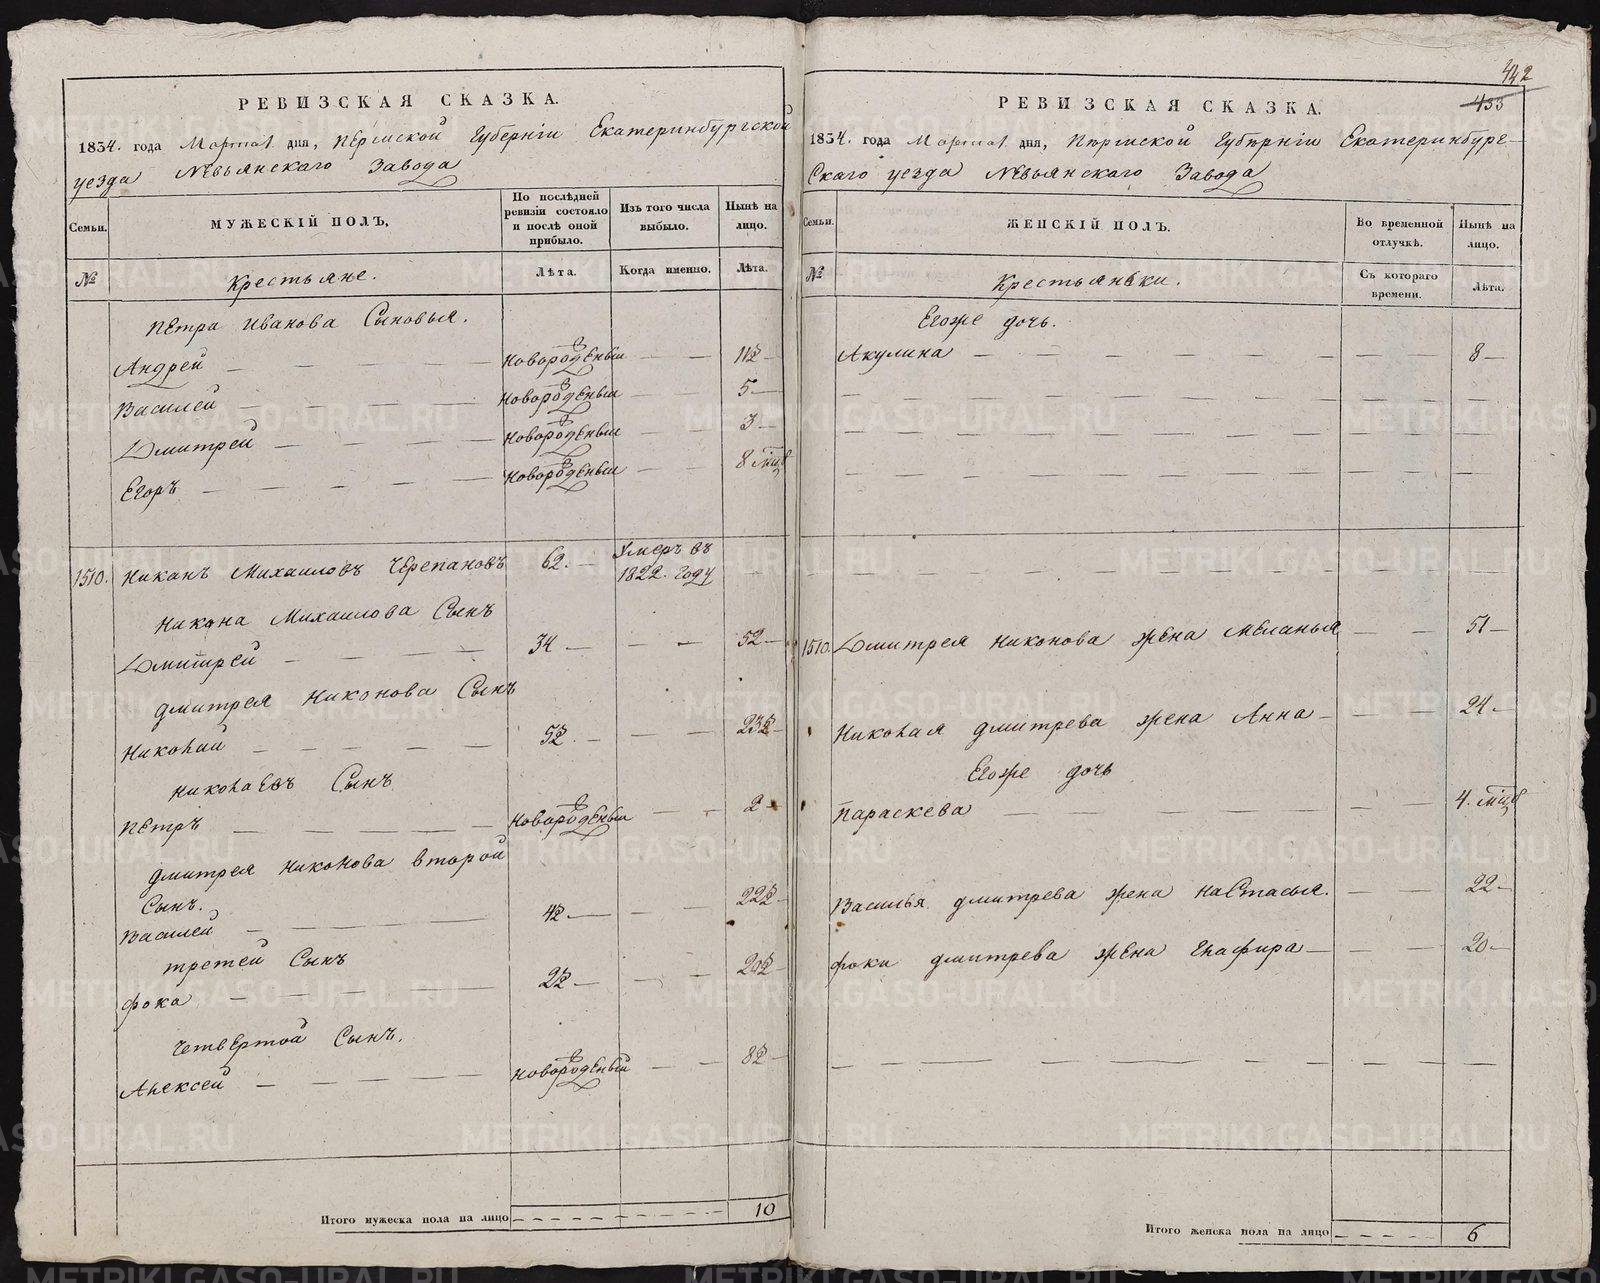 РЕВИЗСКАЯ СКАЗКА.
1834. года Марта дня, Пермской Губерніи Екатеринбургской
уезда Невьянскаго Завода
Семьи. МУЖЕСКІЙ ПОЛЪ, По послѣдней ревизіи состояло и послѣ оной прибыло. Изъ того числа выбыло. Нынѣ на лицо.
№ Крестьяне. Лѣта. Когда именно. Лѣта.
Петра Иванова Сыновья.
Андрей — новорожденый — 11½
Василей — новорожденый — 5
Дмитрей — новорожденый — 3
Егоръ — новорожденый — 8 мцъ
1510. Никанъ Михаиловъ Черепановъ 62. — Умеръ въ 1822. году
Никона Михаилова Сынъ
Дмитрей — 34 — 52
Дмитрея Никонова Сынъ
Николай — 5½ — 23½
Николаевъ Сынъ
Петръ — новорожденый — 2
Дмитрея Никонова второй
Сынъ.
Василей — 4½ — 22½
третей Сынъ
Фока — 2½ — 20½
четвертой Сынъ.
Алексей — новорожденый — 8½
Итого мужеска пола на лицо 10
442
433
РЕВИЗСКАЯ СКАЗКА.
1834. года Марта дня, Пермской Губерніи Екатеринбург-
Скаго уезда Невьянскаго Завода
Семьи. ЖЕНСКІЙ ПОЛЪ. Во временной отлучкѣ. Нынѣ на лицо.
№ Крестьянки. Съ котораго времени. Лѣта.
Егоже дочь.
Акулина — 8
1510. Дмитрея Никонова жена Меланья — 51
Николая Дмитрева жена Анна — 24
Егоже дочь
Параскева — 4. мцъ
Василья Дмитрева жена Настасья. — 22
Фоки Дмитрева жена Глафира — 20
Итого женска пола на лицо 6
METRIKI.GASO-URAL.RU